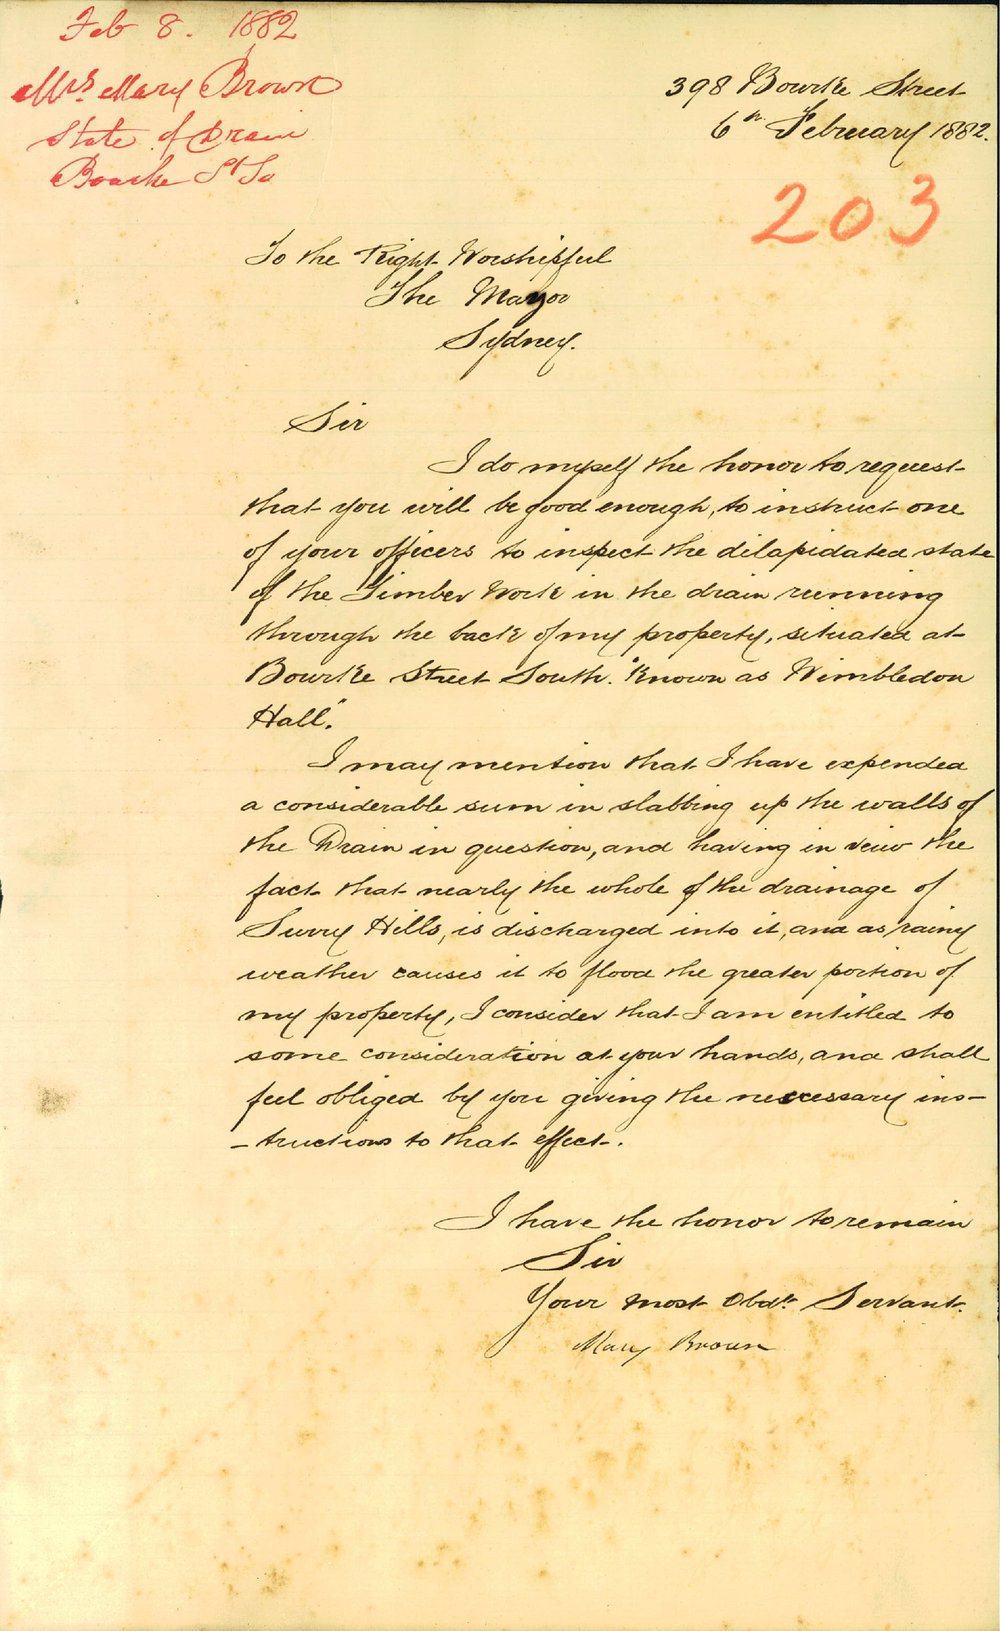 Feb 8. 1882
Mrs. Mary Brown
State of Drain
Bourke St So
398 Bourke Street
6th February 1882.
203
To the Right Worshipful
The Mayor
Sydney.
Sir
I do myself the honor to request
that you will be good enough, to instruct one
of your officers to inspect the dilapidated state
of the Timber Work in the drain running
through the back of my property, situated at
Bourke Street South. "Known as Wimbledon
Hall".
I may mention that I have expended
a considerable sum in slabbing up the walls of
the Drain in question, and having in veiw the
fact that nearly the whole of the drainage of
Surry Hills, is discharged into it, and as rainy
weather causes it to flood the greater portion of
my property, I consider that I am entitled to
some consideration at your hands, and shall
feel obliged by you giving the necessary ins-
-tructions to that effect.
I have the honor to remain
Sir
Your most Obdt. Servant.
Mary Brown